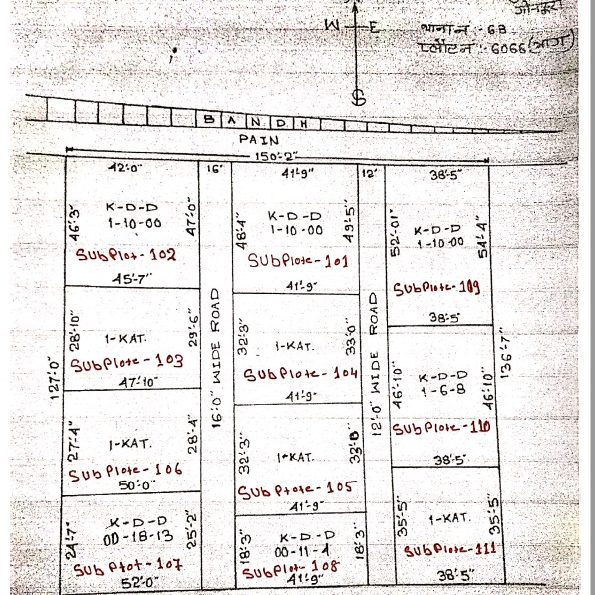 W E
थाना नं :- 68
प्लॉट नं :- 6066 (भाग)
S
BANDH
PAIN
150'-2"
42'-0"
16'
41'-9"
12'
38'-5"
46'-3"
K-D-D
1-10-00
47'-0"
Sub Plot - 102
45'-7"
48'-4"
K-D-D
1-10-00
49'-5"
Sub Plote - 101
41'-9"
52'-01"
K-D-D
1-10-00
54'-4"
Sub Plote - 109
38'-5"
127'-0"
28'-10"
1-KAT.
29'-6"
Sub Plote - 103
47'-10"
16'-0" WIDE ROAD
32'-3"
1-KAT.
33'-0"
Sub Plote - 104
41'-9"
12'-0" WIDE ROAD
46'-10"
K-D-D
1-6-8
46'-10"
Sub Plote - 110
38'-5"
136'-7"
27'-4"
1-KAT.
28'-4"
Sub Plote - 106
50'-0"
32'-3"
1-KAT.
33'-0"
Sub Ptote - 105
41'-9"
35'-5"
1-KAT.
35'-5"
Sub Plote - 111
38'-5"
24'-7"
K-D-D
00-18-13
25'-2"
Sub Ptot - 107
52'-0"
18'-3"
K-D-D
00-11-4
18'-3"
Sub Plot - 108
41'-9"